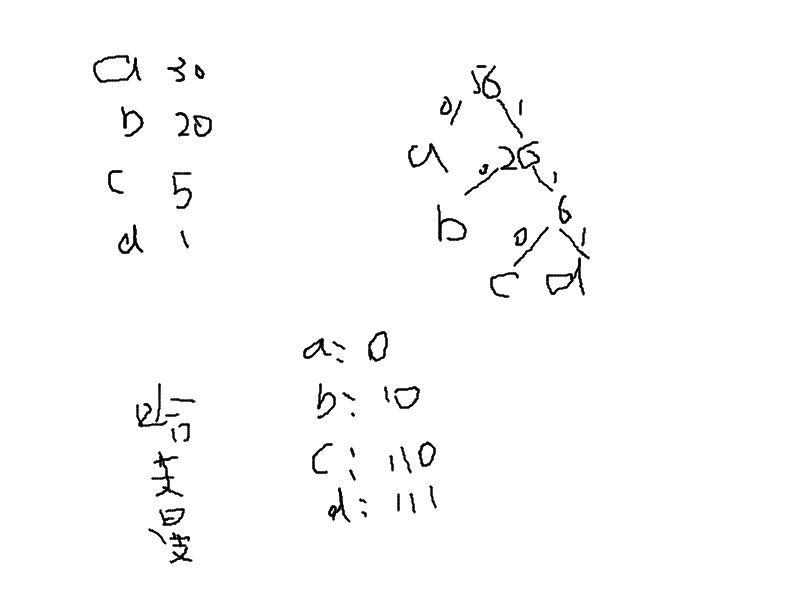 a 30
b 20
c 5
d 1
56
0 1
a 26
0 1
b 6
0 1
c d
a: 0
b: 10
c: 110
d: 111